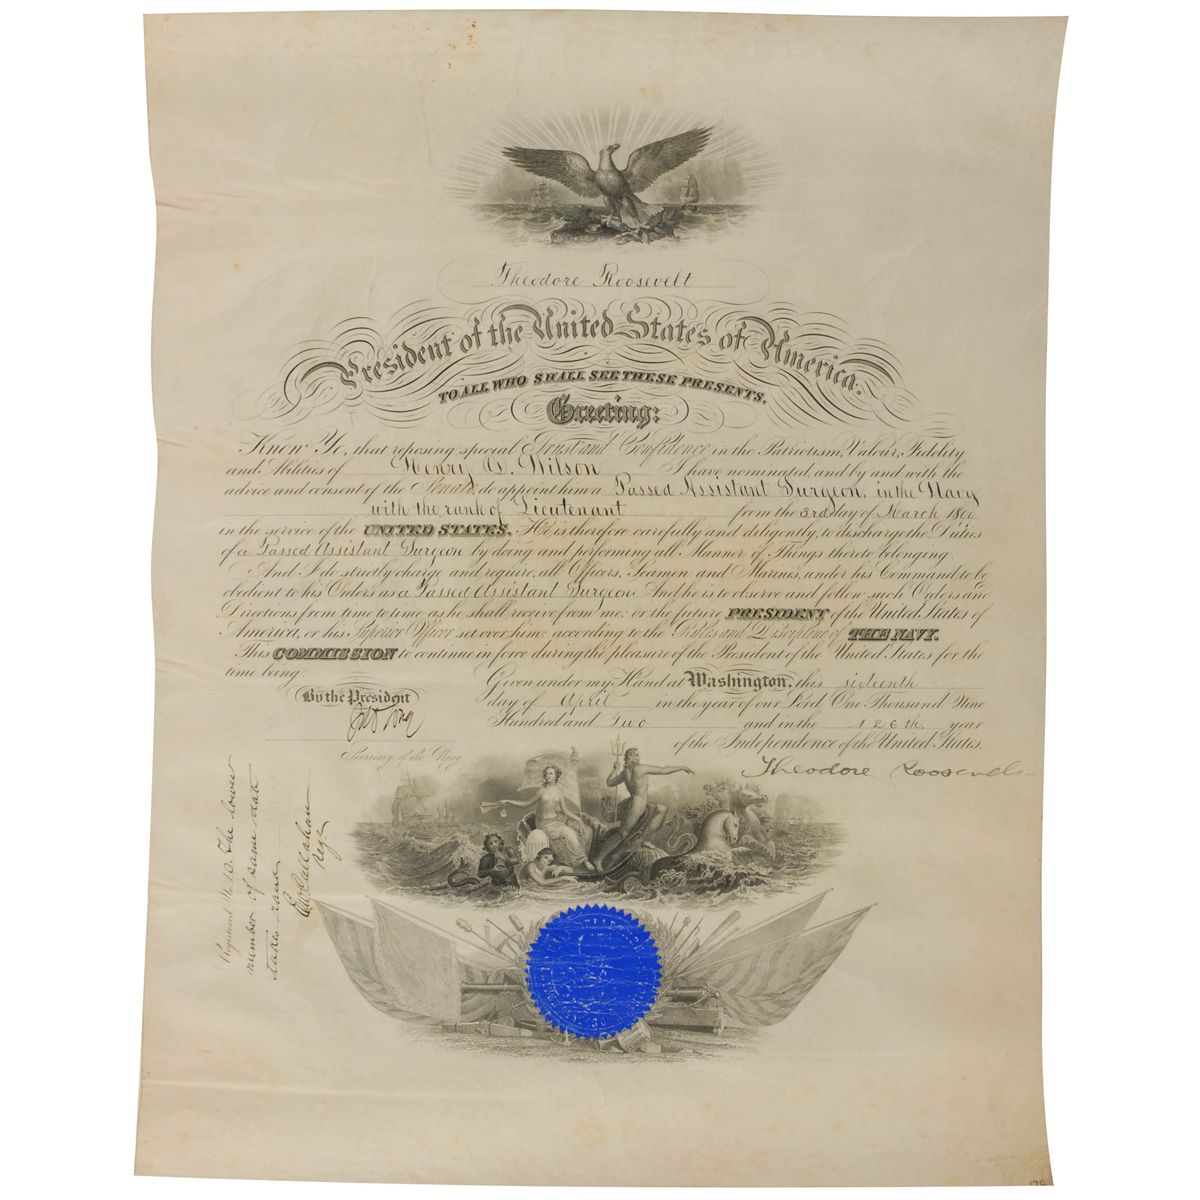 Theodore Roosevelt
President of the United States of America.
TO ALL WHO SHALL SEE THESE PRESENTS,
Greeting:
Know Ye, that reposing special Trust and Confidence in the Patriotism, Valour, Fidelity
and Abilities of Henry D. Wilson I have nominated, and by and with the
advice and consent of the Senate, do appoint him a Passed Assistant Surgeon, in the Navy
with the rank of Lieutenant from the 3rd day of March
in the service of the UNITED STATES. He is therefore carefully and diligently, to discharge the Duties
of a Passed Assistant Surgeon by doing and performing all Manner of Things thereto belonging.
And I do strictly charge and require, all Officers, Seamen and Marines, under his Command to be
obedient to his Orders as a Passed Assistant Surgeon And he is to observe and follow such Orders and
Directions from time to time as he shall receive from me, or the future PRESIDENT of the United States of
America, or his Superior Officer set over him; according to the Rules and Discipline of THE NAVY.
This COMMISSION to continue in force during the pleasure of the President of the United States for the
time being.
Given under my Hand at Washington, this sixteenth
day of April in the year of our Lord One Thousand Nine
Hundred and Two and in the 126th. year
of the Independence of the United States.
By the President
Secretary of the Navy
Theodore Roosevelt
Registered No. 10. The lower
number of same date
takes rank
Callahan
Reg